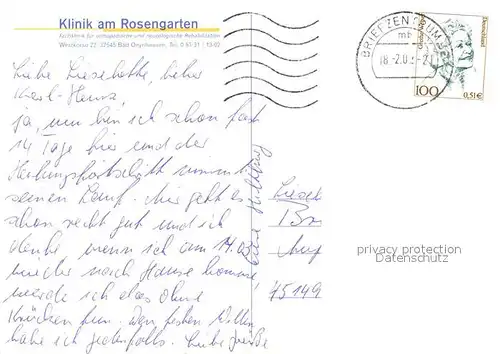 Klinik am Rosengarten
Fachklinik für orthopädische und neurologische Rehabilitation
Westkorso 22, 32545 Bad Oeynhausen, Tel.
Liebe Lieselotte, lieber
Karl-Heinz,
ja, nun bin ich schon fast
14 Tage hier und der
Heilungsfortschritt nimmt
seinen Lauf. Mir geht es
schon recht gut und ich
denke wenn ich am 14.03
wieder nach Hause komme,
werde ich das ohne
Krücken tun. Den festen Willen
habe ich jedenfalls. Liebe Grüße
BRIEFZENTRUM
mb
18.-2.0
Deutschland
100
0,51€
Liesel
75149
privacy protection
Datenschutz